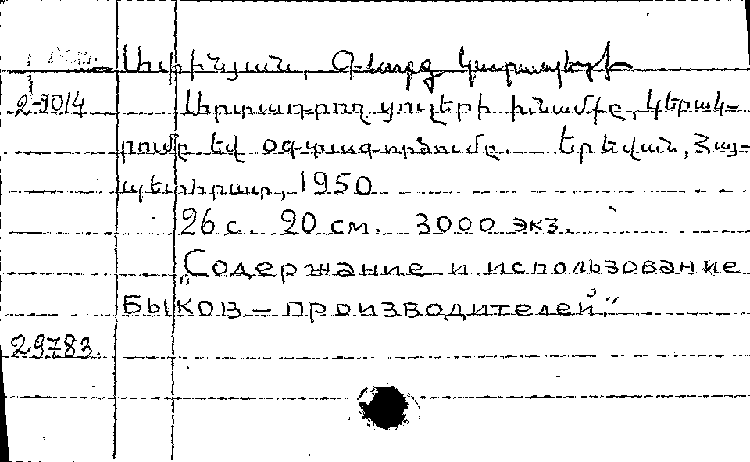 Ափինյան, Գևորգ Կարապետի
2-9014 Արտադրող ցուլերի խնամքը, կերակ-
րումը եվ օգտագործումը. Երեվան, Հայ-
պետհրատ, 1950
26 с. 20 см. 3000 экз.
„Содержание и использование
быков – производителей."
29783.